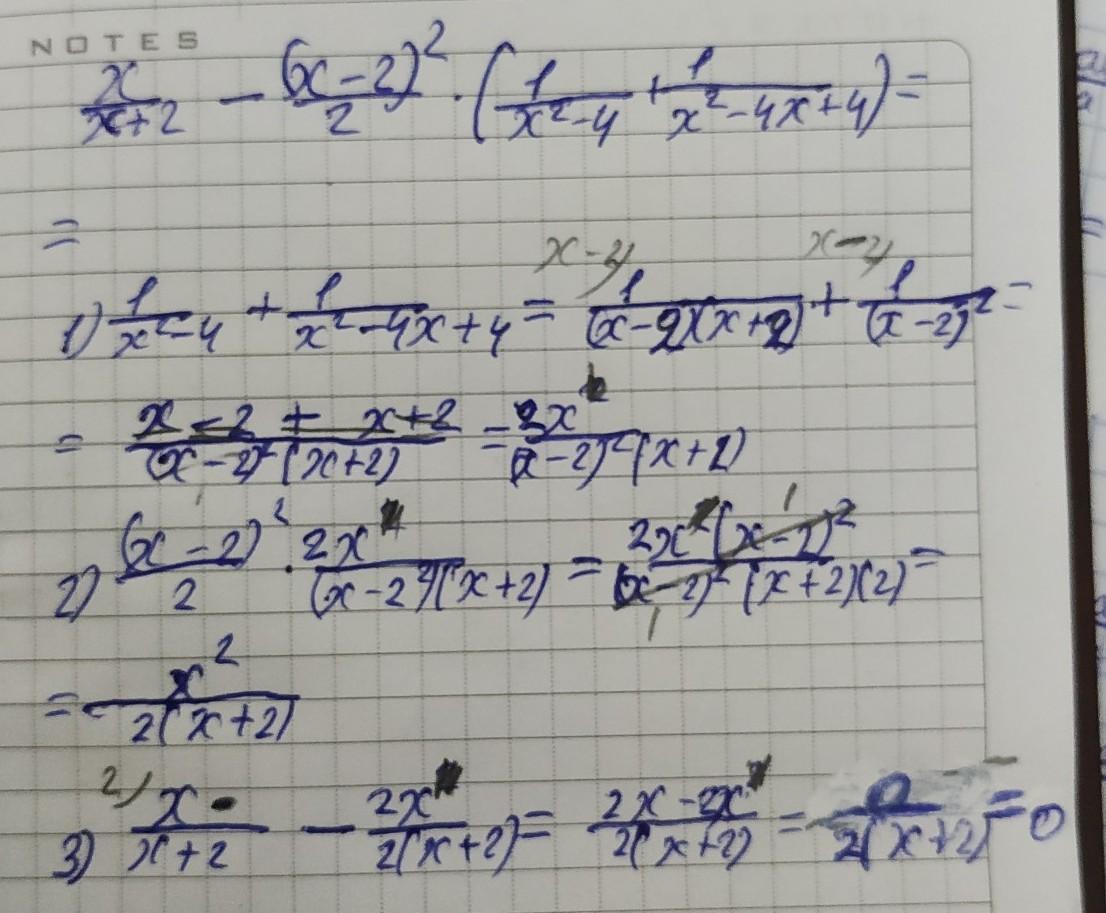 NOTES
x/(x+2) - (x-2)²/2 · (1/(x²-4) + 1/(x²-4x+4)) =
=
x-2) x-2)
1) 1/(x²-4) + 1/(x²-4x+4) = 1/((x-2)(x+2)) + 1/(x-2)² =
= (x-2 + x+2)/((x-2)²(x+2)) = 2x/((x-2)²(x+2))
2) (x-2)²/2 · 2x/((x-2²)(x+2)) = 2x²(x-2)²/((x-2)²(x+2)(2)) =
= x²/(2(x+2))
3) 2) x/(x+2) - 2x/(2(x+2)) = (2x-2x)/(2(x+2)) = 0/(2(x+2)) = 0